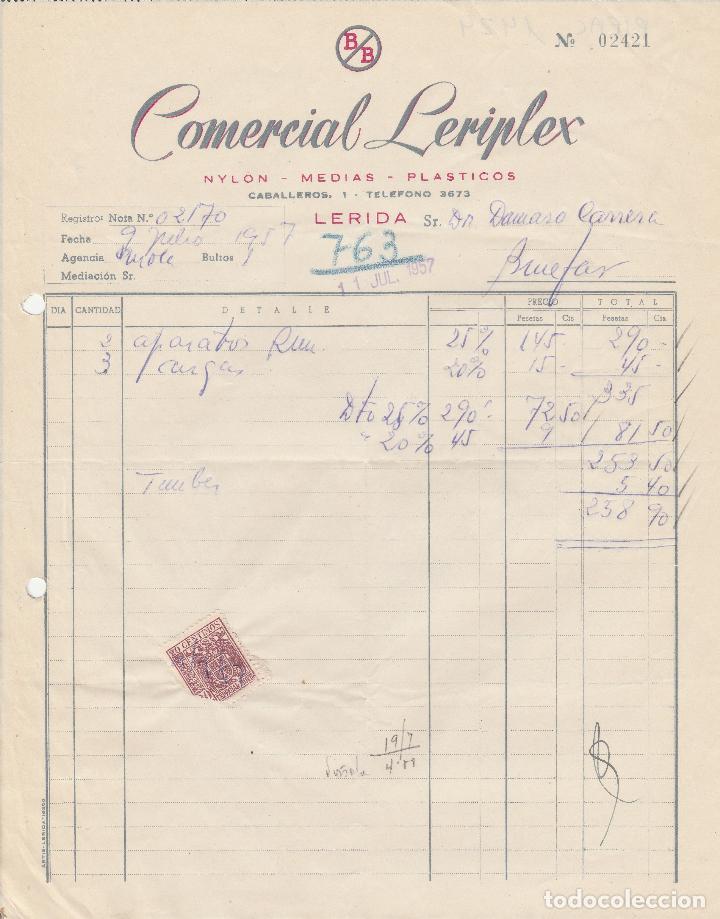 B B
Nº 02421
Comercial Leriplex
NYLON - MEDIAS - PLASTICOS
CABALLEROS, 1 - TELEFONO 3673
LERIDA
Registro: Nota N.º 02170
Sr. Dn Damaso Carrera
Fecha 9 Julio 1957
763
11 JUL. 1957
Agencia Bultos 1
Mediación Sr.
DIA CANTIDAD DETALLE PRECIO TOTAL
Pesetas Cts Pesetas Cts
2 aparatos 25% 145 290 -
3 cargas 20% 15 - 45 -
335
Dto 25% 290 72 50
" 20% 45 9 81 50
253 50
Timbres 5 40
258 90
CENTIMOS
19/7
todocoleccion
todocoleccion.net